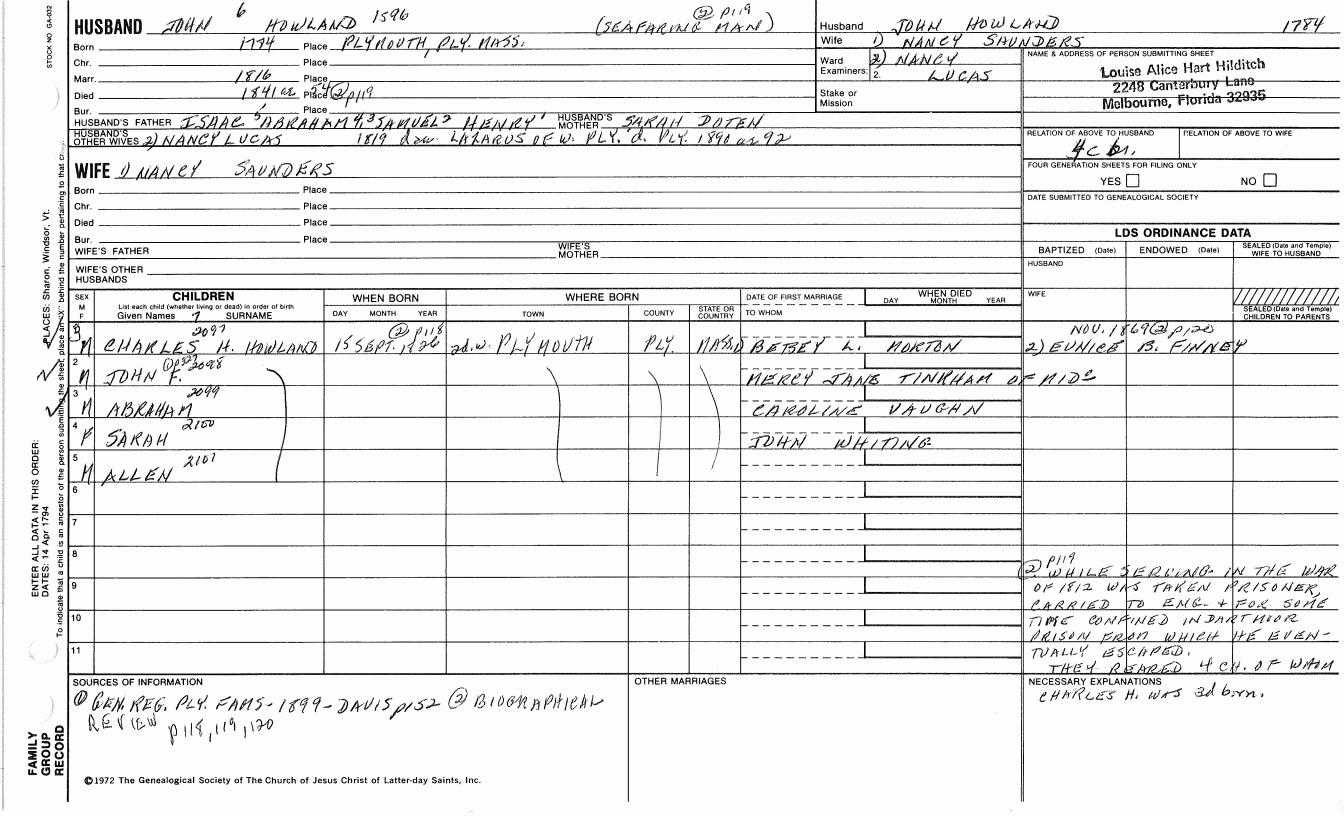 STOCK NO. GA-032
HUSBAND JOHN 6 HOWLAND 1596 (SEAFARING MAN) ② p119
Born 1774 Place PLYMOUTH, PLY. MASS.
Chr. Place
Marr. 1816 Place
Died 1841 or 24 Place ② p119
Bur. Place
HUSBAND'S FATHER ISAAC 5 ABRAHAM 4,3 SAMUEL 2 HENRY 1 HUSBAND'S MOTHER SARAH DOTEN
HUSBAND'S OTHER WIVES 2) NANCY LUCAS 1819 daw. LAZARUS OF W. PLY. d. PLY. 1890 or 92
WIFE 1) NANCY SAUNDERS
Born Place
Chr. Place
Died Place
Bur. Place
WIFE'S FATHER WIFE'S MOTHER
WIFE'S OTHER HUSBANDS
Husband JOHN HOWLAND 1784
Wife 1) NANCY SAUNDERS
Ward 2) NANCY
Examiners: 2. LUCAS
Stake or Mission
NAME & ADDRESS OF PERSON SUBMITTING SHEET
Louise Alice Hart Hilditch
2248 Canterbury Lane
Melbourne, Florida 32935
RELATION OF ABOVE TO HUSBAND RELATION OF ABOVE TO WIFE
4c br.
FOUR GENERATION SHEETS FOR FILING ONLY
YES NO
DATE SUBMITTED TO GENEALOGICAL SOCIETY
LDS ORDINANCE DATA
BAPTIZED (Date) ENDOWED (Date) SEALED (Date and Temple) WIFE TO HUSBAND
HUSBAND
WIFE
SEALED (Date and Temple) CHILDREN TO PARENTS
SEX M F CHILDREN WHEN BORN WHERE BORN DATE OF FIRST MARRIAGE WHEN DIED
List each child (whether living or dead) in order of birth
Given Names 7 SURNAME DAY MONTH YEAR TOWN COUNTY STATE OR COUNTRY TO WHOM DAY MONTH YEAR
2097 ② p118 NOV. 1869 ② p120
3 M CHARLES H. HOWLAND 15 SEPT. 1826 2d. w. PLYMOUTH PLY. MASS. 1) BETSEY L. MORTON 2) EUNICE B. FINNEY
2 M JOHN F. ① p 323 2098 MERCY JANE TINKHAM OF MIDo
3 M ABRAHAM 2099 CAROLINE VAUGHN
4 F SARAH 2100 JOHN WHITING
5 M ALLEN 2101
6
7
8
9
10
11
② p119
WHILE SERVING IN THE WAR
OF 1812 WAS TAKEN PRISONER,
CARRIED TO ENG. + FOR SOME
TIME CONFINED IN DARTMOOR
PRISON FROM WHICH HE EVEN-
TUALLY ESCAPED.
THEY REARED 4 CH. OF WHOM
NECESSARY EXPLANATIONS
CHARLES H. WAS 3d born.
SOURCES OF INFORMATION
① GEN. REG. PLY. FAMS - 1899 - DAVIS p152 ② BIOGRAPHICAL
REVIEW p118, 119, 120
OTHER MARRIAGES
©1972 The Genealogical Society of The Church of Jesus Christ of Latter-day Saints, Inc.
FAMILY GROUP RECORD
ENTER ALL DATA IN THIS ORDER:
DATES: 14 Apr 1794
PLACES: Sharon, Windsor, Vt.
To indicate that a child is an ancestor of the person submitting the sheet, place an "X" behind the number pertaining to that